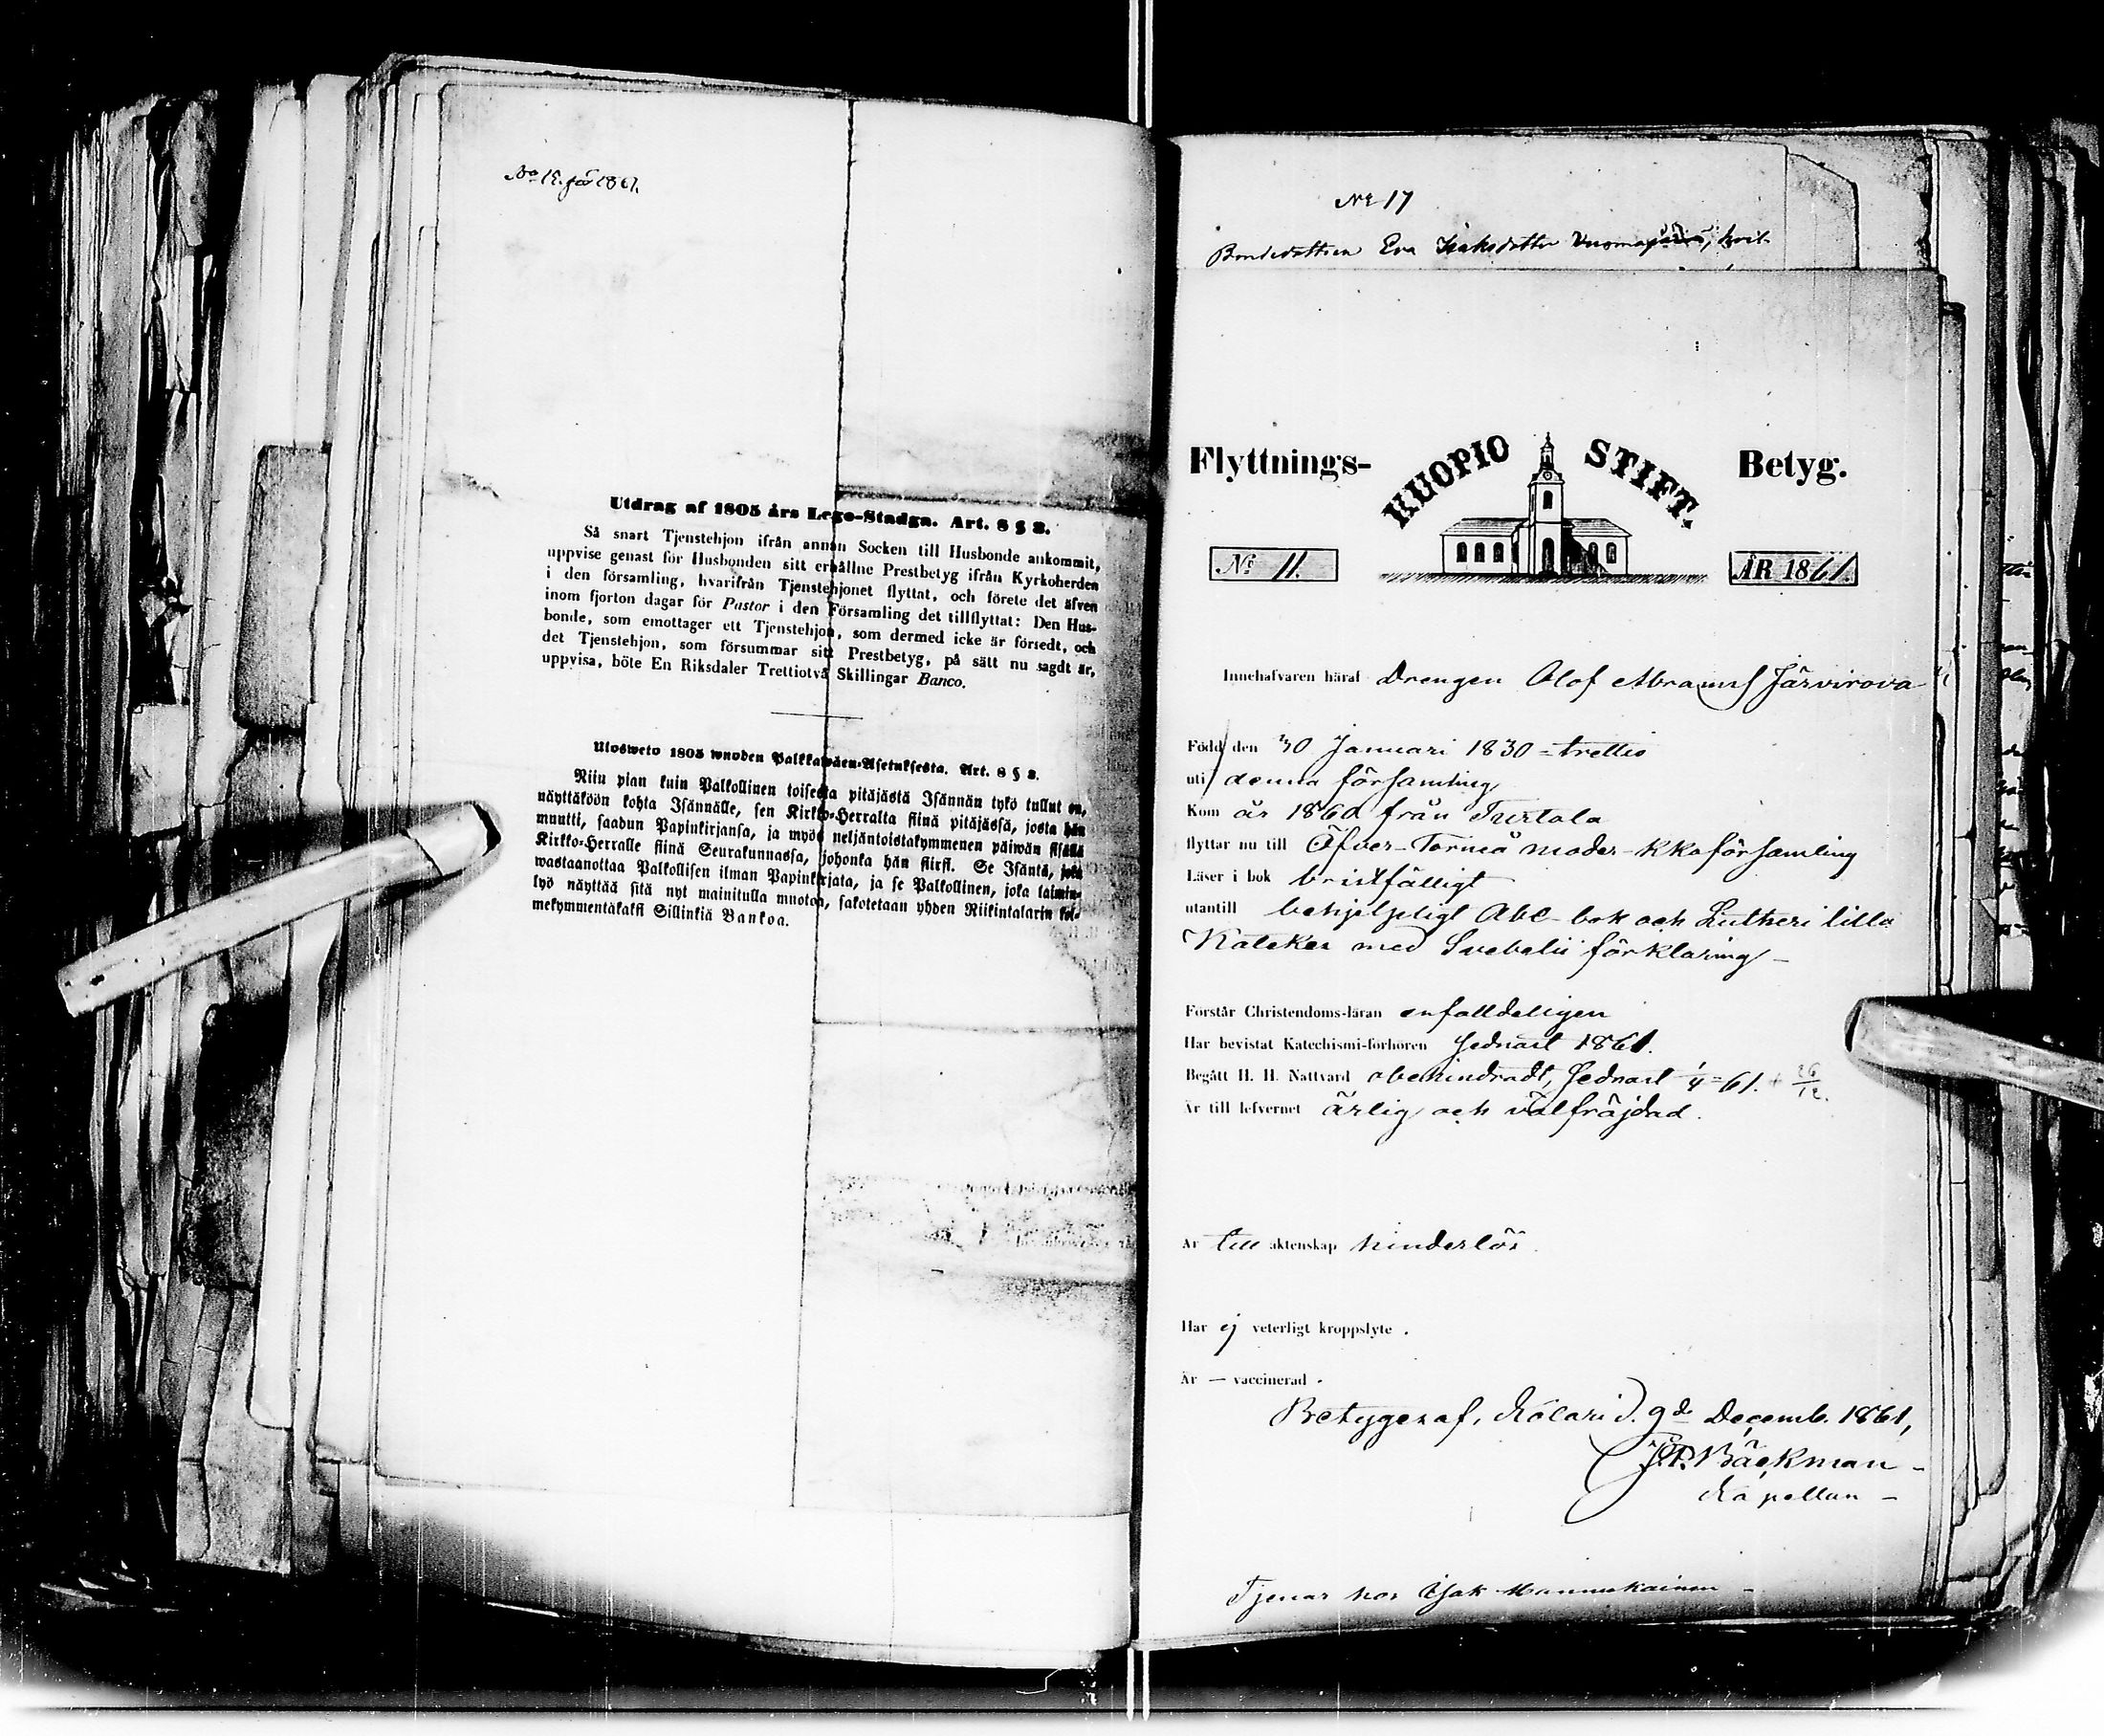 No 18. för 1861.
Utdrag af 1805 års Lego-Stadga. Art. 8 § 2.
Så snart Tjenstehjon ifrån annan Socken till Husbonde ankommit,
uppvise genast för Husbonden sitt erhållne Prestbetyg ifrån Kyrkoherden
i den församling, hvarifrån Tjenstehjonet flyttat, och förete det äfven
inom fjorton dagar för Pastor i den Församling det tillflyttat: Den Hus-
bonde, som emottager ett Tjenstehjon, som dermed icke är försedt, och
det Tjenstehjon, som försummar sitt Prestbetyg, på sätt nu sagdt är,
uppvisa, böte En Riksdaler Trettiotvå Skillingar Banco.
Ulosweto 1805 wuoden Palkkawäen-Asetuksesta. Art. 8 § 2.
Niin pian kuin Palkollinen toisesta pitäjästä Isännän tykö tullut on,
näyttäköön kohta Isännälle, sen Kirkko-Herralta siinä pitäjässä, josta hän
muutti, saadun Papinkirjansa, ja myös neljäntoistakymmenen päiwän sisällä
Kirkko-Herralle siinä Seurakunnassa, johonka hän siirsi. Se Isäntä, joka
wastaanottaa Palkollisen ilman Papinkirjata, ja se Palkollinen, joka laimin-
lyö näyttää sitä nyt mainitulla muotoa, sakotetaan yhden Riikintalarin kol-
mekymmentäkaksi Sillinkiä Bankoa.
No 17
Bondedottren Eva Isaksdotter
Flyttnings- HUOPIO STIFT. Betyg.
No 11. ÅR 1861.
Innehafvaren häraf Drengen Olof Abramsf Järvirova
Född den 30 Januari 1830 = trettio
uti denna församling
Kom år 1860 från Turtola
flyttar nu till Öfver-Torneå moder-kkoförsamling
Läser i bok bristfälligt
utantill behjelpligt Abc-bok och Lutheri lilla
Kateches med Svebelii förklaring -
Förstår Christendoms-läran enfalldeligen
Har bevistat Katechismi-förhören sednast 1861.
Begått H. H. Nattvard obehindradt, sednast 1/4 = 61. + 26/12.
Är till lefvernet ärlig och välfräjdad.
Är till äktenskap hinderlös.
Har ej veterligt kroppslyte.
Är — vaccinerad.
Betygeraf, Kolari d. 9de Decemb. 1861,
J. P. Bäckman -
Kapellan -
Tjenar hos Isak Mannukainen -